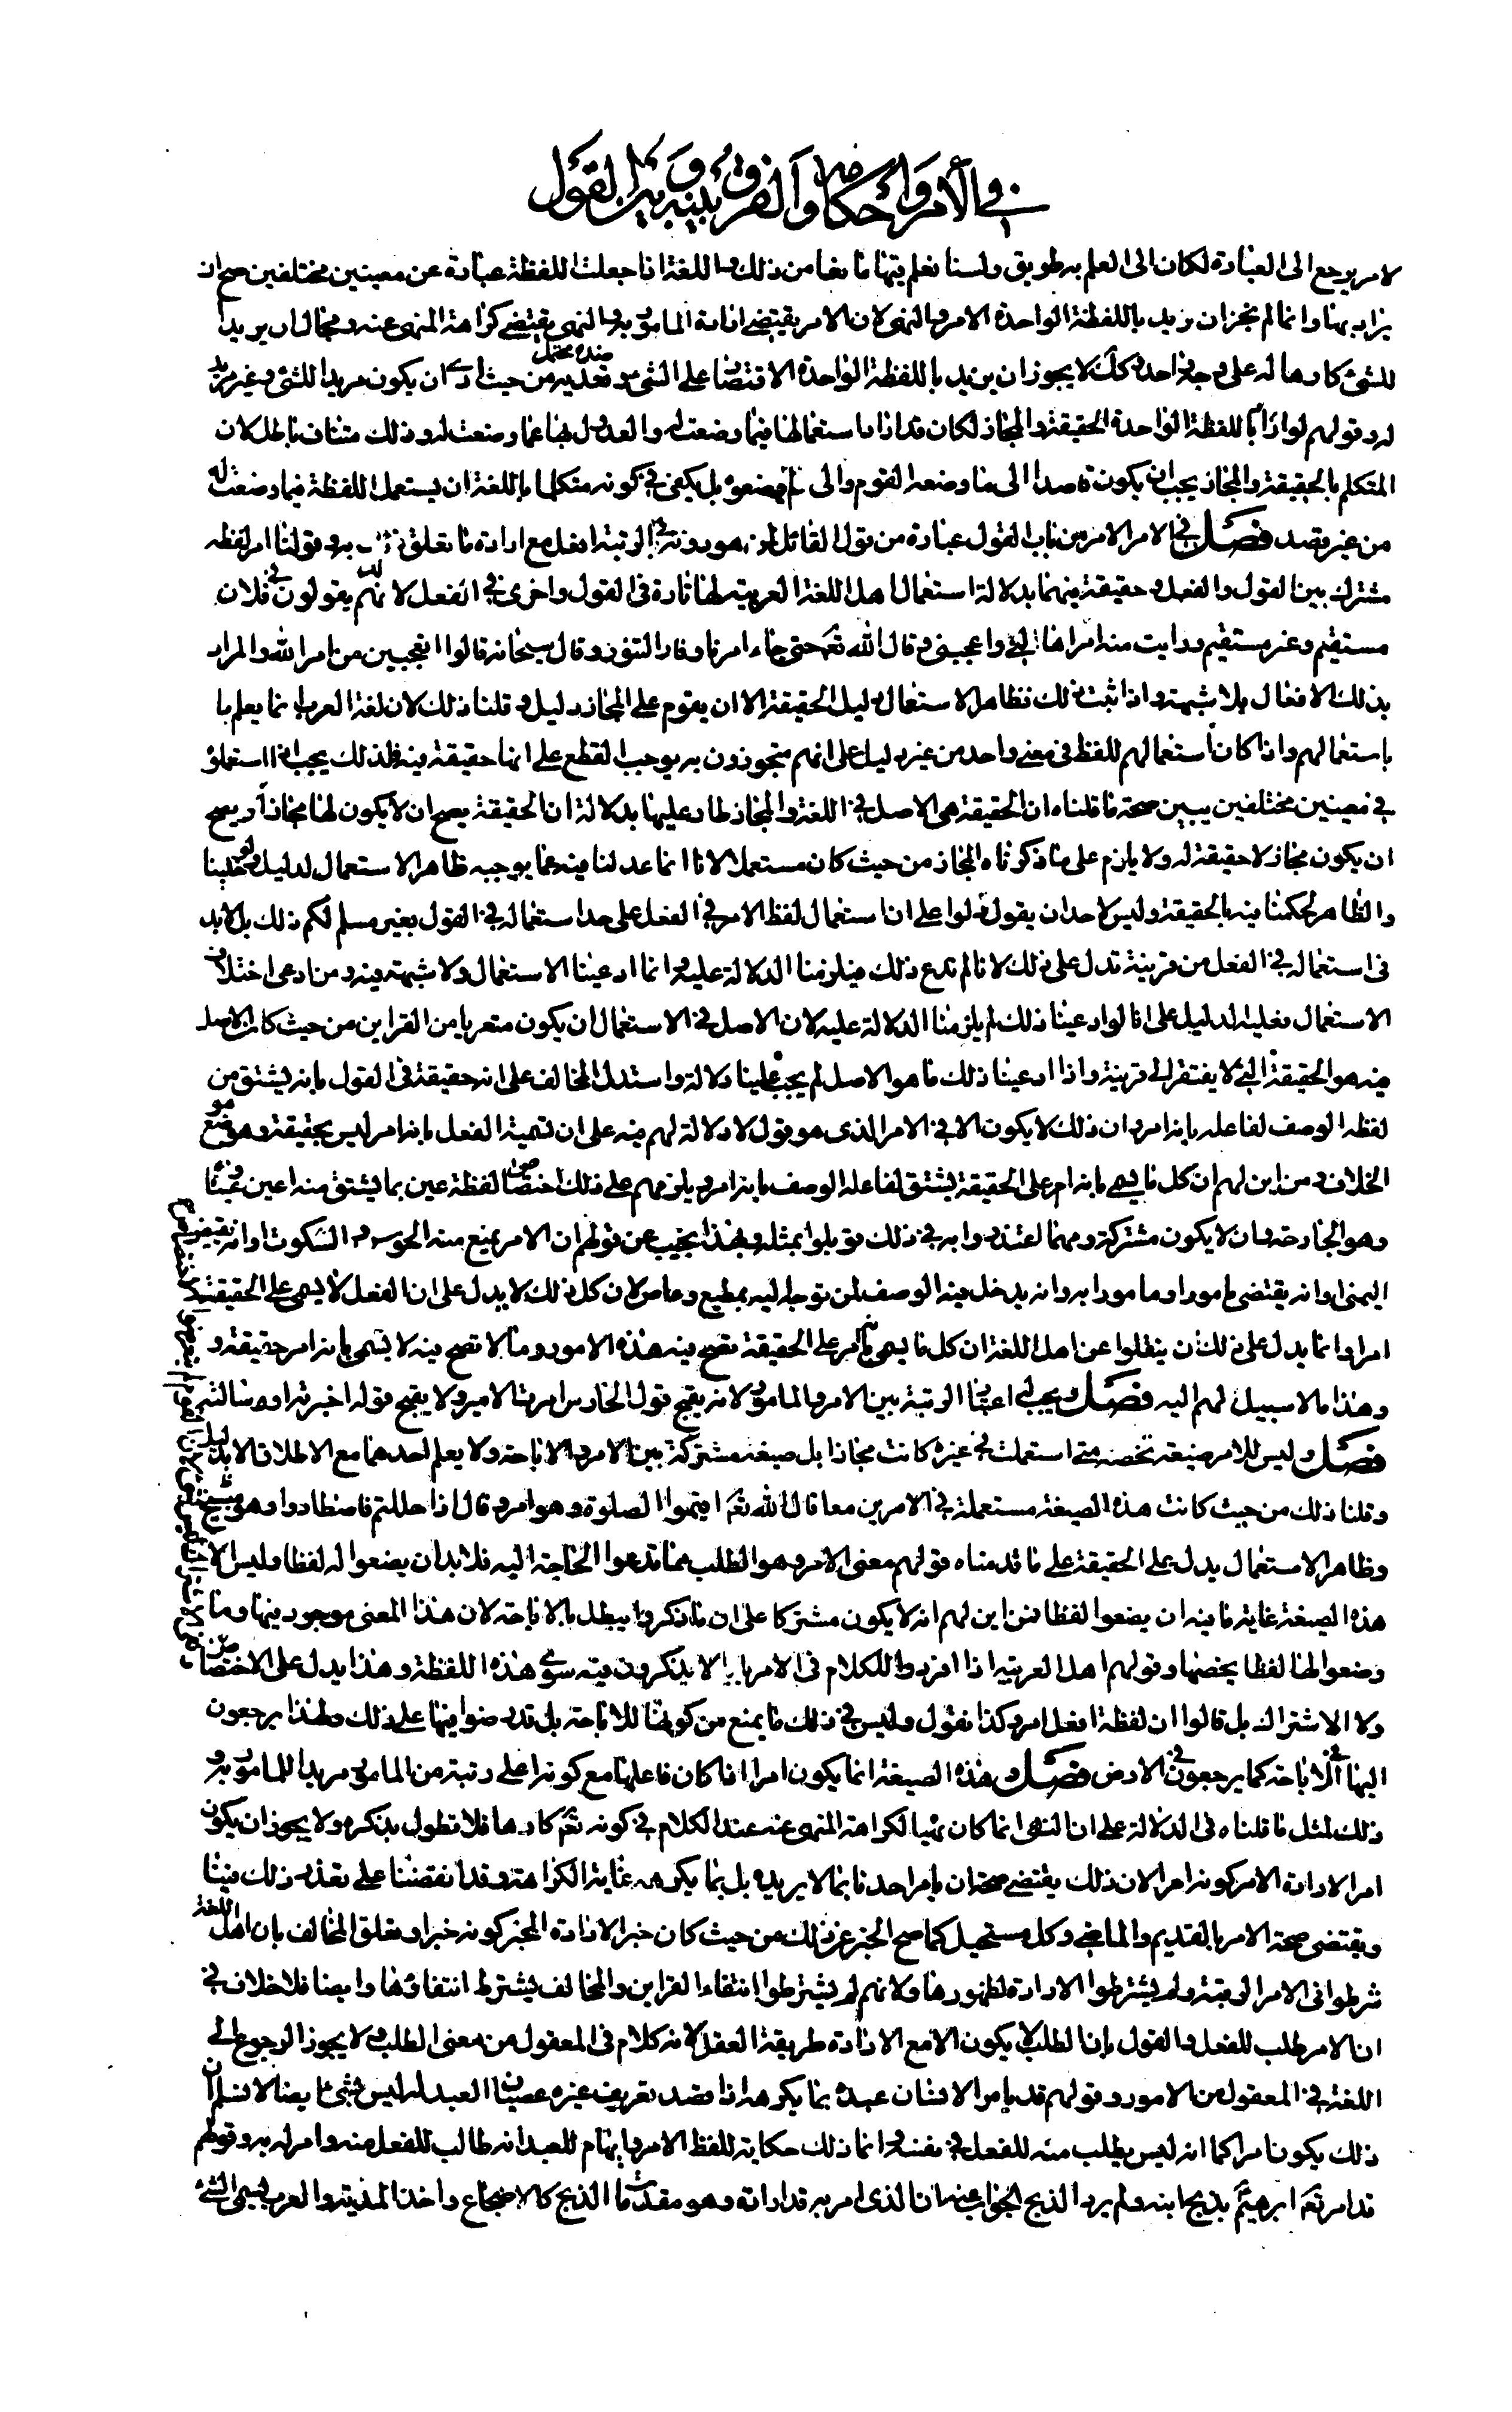 في الأمر وأحكامه والفرق بينه وبين القول
لامر يرجع الى العبادة لكان الى العلم به طريق ولسنا نعلم يقينا مانعا من ذلك و اللغة اذا جعلت اللفظة عبارة عن معنيين مختلفين صح ان
يراد بهما وانما لم يجز ان يريد باللفظة الواحدة الامر والنهي لان الامر يقتضي ارادة المأمور به والنهي يقتضي كراهة المنهى عنه ومحال ان يريد
للشئ كارها له على وجه واحد كك لا يجوز ان يريد باللفظة الواحدة الاقتصار على الشئ و تعديه من حيث ان يكون مريدا للشئ وغير مريد
له وقولهم لو اراد باللفظة الواحدة الحقيقة والمجاز لكان قد اراد استعمالها فيما وضعت له والعدول بها عما وضعت له وذلك متناف باطل لان
المتكلم بالحقيقة والمجاز يجب ان يكون قاصدا الى ما وضعه القوم والى ما لم يضعوه بل يكفى في كونه متكلما باللغة ان يستعمل اللفظة فيما وضعت له
من غير قصد فصل في الامر الامر من باب القول عبارة من قول القائل لمن هو دونه في الرتبة افعل مع ارادة ما تعلق به وقولنا امر لفظه
مشترك بين القول والفعل و حقيقة فيهما بدلالة استعمال اهل اللغة العربية لها تارة في القول واخرى في الفعل لانهم يقولون امر فلان
مستقيم وغير مستقيم ورايت منه امرا هالني واعجبني وقال الله تعالى حتى جاء امرنا وفار التنور وقال سبحانه قالوا اتعجبين من امر الله والمراد
بذلك الافعال بلا شبهة واذا ثبت ذلك فظاهر الاستعمال دليل الحقيقة الا ان يقوم على المجاز دليل و قلنا ذلك لان لغة العرب انما يعلم با
باستعمالهم واذا كان استعمالهم للفظ في معنى واحد من غير دليل على انهم متجوزون به يوجب القطع على انها حقيقة فيه فلذلك يجب اذا استعملوا
في معنيين مختلفين يبين صحة ما قلناه ان الحقيقة هي الاصل في اللغة والمجاز طار عليها بدلالة ان الحقيقة يصح ان لا يكون لها مجازا ويصح
ان يكون مجاز لا حقيقة له ولا يلزم على ما ذكرناه المجاز من حيث كان مستعملا لانا انما عدلنا فيه عما يوجبه ظاهر الاستعمال لدليل ولو خلينا
والظاهر لحكمنا فيه بالحقيقة وليس لاحد ان يقول دلوا على ان استعمال لفظ الامر في الفعل على حد استعماله في القول بغير مسلم لكم ذلك بل لابد
في استعماله في الفعل من قرينة تدل على ذلك لانا لم ندع ذلك فيلزمنا الدلالة عليه و انما ادعينا الاستعمال ولا شبهة فيه ومن ادعى اختلاف
الاستعمال فعليه الدليل على انا لو ادعينا ذلك لم يلزمنا الدلالة عليه لان الاصل في الاستعمال ان يكون متعريا من القراين من حيث كان الاصل
فيه هو الحقيقة التي لا يفتقر الى قرينة واذا ادعينا ذلك ما هو الاصل لم يجب علينا دلالة واستدل المخالف على انه حقيقة في القول بانه يشتق من
لفظه الوصف لفاعله بانه امر وان ذلك لا يكون الا في الامر الذى هو قول لا دلالة لهم فيه على ان تسمية الفعل بانه امر ليس بحقيقة وهو موضع
الخلاف ومن اين لهم ان كل ما يسمى بانه امر على الحقيقة يشتق لفاعله الوصف بانه امر ويلزمهم على ذلك اختصاص لفظة عين بما يشتق منه اعين
وهو الجارحة بان لا يكون مشتركة ومهما اعتذروا به في ذلك قوبلوا بمثله وبهذا يجيب عن قولهم ان الامر يمنع منه الخرس و السكوت وانه نقيضه
النهي وانه يقتضي مامورا ومامورا به وانه يدخل فيه الوصف لمن توجه اليه بمطيع وعاص لان كل ذلك لا يدل على ان الفعل لا يسمى على الحقيقة
امرا وانما يدل على ذلك ان ينقلوا عن اهل اللغة ان كل ما يسمى بانه امر على الحقيقة تصح فيه هذه الامور وما لا تصح فيه لا يسمى بانه امر حقيقة و
وهذا ما لا سبيل لهم اليه فصل و يجب اعتبار الرتبة بين الامر والمامور لانه يقبح قول الحارس امرت الامير ولا يقبح قوله اخبرته او سالته
فصل و ليس للامر صيغة تخصه متى استعملت في غيره كانت مجازا بل صيغته مشتركة بين الامر والاباحة ولا يعلم احدهما مع الاطلاق الا بدليل
وقلنا ذلك من حيث كانت هذه الصيغة مستعملة في الامرين معا قال الله تعالى اقيموا الصلوة وهو امر وقال اذا حللتم فاصطادوا وهو مبيح
وظاهر الاستعمال يدل على الحقيقة على ما قدمناه قولهم معنى الامر وهو الطلب مما تدعوا الحاجة اليه فلابد ان يضعوا له لفظا وليس الا
هذه الصيغة غاية ما فيه ان يضعوا لفظا فمن اين لهم انه لا يكون مشتركا على ان ما ذكروه يبطل بالاباحة لان هذا المعنى موجود فيها وما
وضعوا لها لفظا يخصها وقولهم اهل العربية اذا افردوا الكلام في الامر لا يذكرون فيه سوى هذه اللفظة وهذا يدل على الاختصاص
ولا الاشتراك بل قالوا ان لفظة افعل امر وكذا نقول وليس في ذلك ما يمنع من كونها للاباحة بل قد نصوا فيها على ذلك ولهذا يرجعون
اليها في الاباحة كما يرجعون في الامر فصل و هذه الصيغة انما يكون امرا اذا كان فاعلها مع كونه اعلى رتبة من المامور مريدا للمامور به و
ذلك لمثل ما قلناه في الدلالة على ان النهى انما كان نهيا لكراهة المنهى عنه عند الكلام في كونه تعالى كارها فلا نطول بذكره ولا يجوز ان يكون
امرا لارادة الامر كونه امرا لان ذلك يقتضي صحة ان يامر احدنا بما لا يريده بل بما يكرهه غاية الكراهة وقد انفصلنا على تعذر ذلك فينا
ويقتضى صحة الامر بالقديم والماضي وكل مستحيل كما صح الخبر عن ذلك من حيث كان خبرا لارادة المخبر كونه خبرا وتعلق المخالف بان اهل اللغة
شرطوا في الامر الرتبة ولم يشترطوا الارادة لظهورها ولانهم لم يشترطوا انتفاء القراين والمخالف يشترط انتفاؤها وايضا فلا خلاف في
ان الامر طلب للفعل والقول بان الطلب لا يكون الا مع الارادة طريقة العقل لانه كلام في المعقول من معنى الطلب ولا يجوز الرجوع الى
اللغة في المعقول من الامور وقولهم قد يامر الانسان عبده بما يكرهه اذا قصد تعريف غيره عصيان العبد له ليس بشئ ايضا لانا نسلم ان
ذلك يكون امرا كما انه ليس يطلب منه للفعل في نفسه وانما ذلك حكاية للفظ الامر بايهام للعبد انه طالب للفعل منه وامر له به وقولهم
قد امر تعالى ابرهيم بذبح ابنه ولم يرد الذبح الجواب عنه ان الذى امر به قد اراده وهو مقدمات الذبح كالاضجاع واخذ المدية والعرب يسمى الشئ